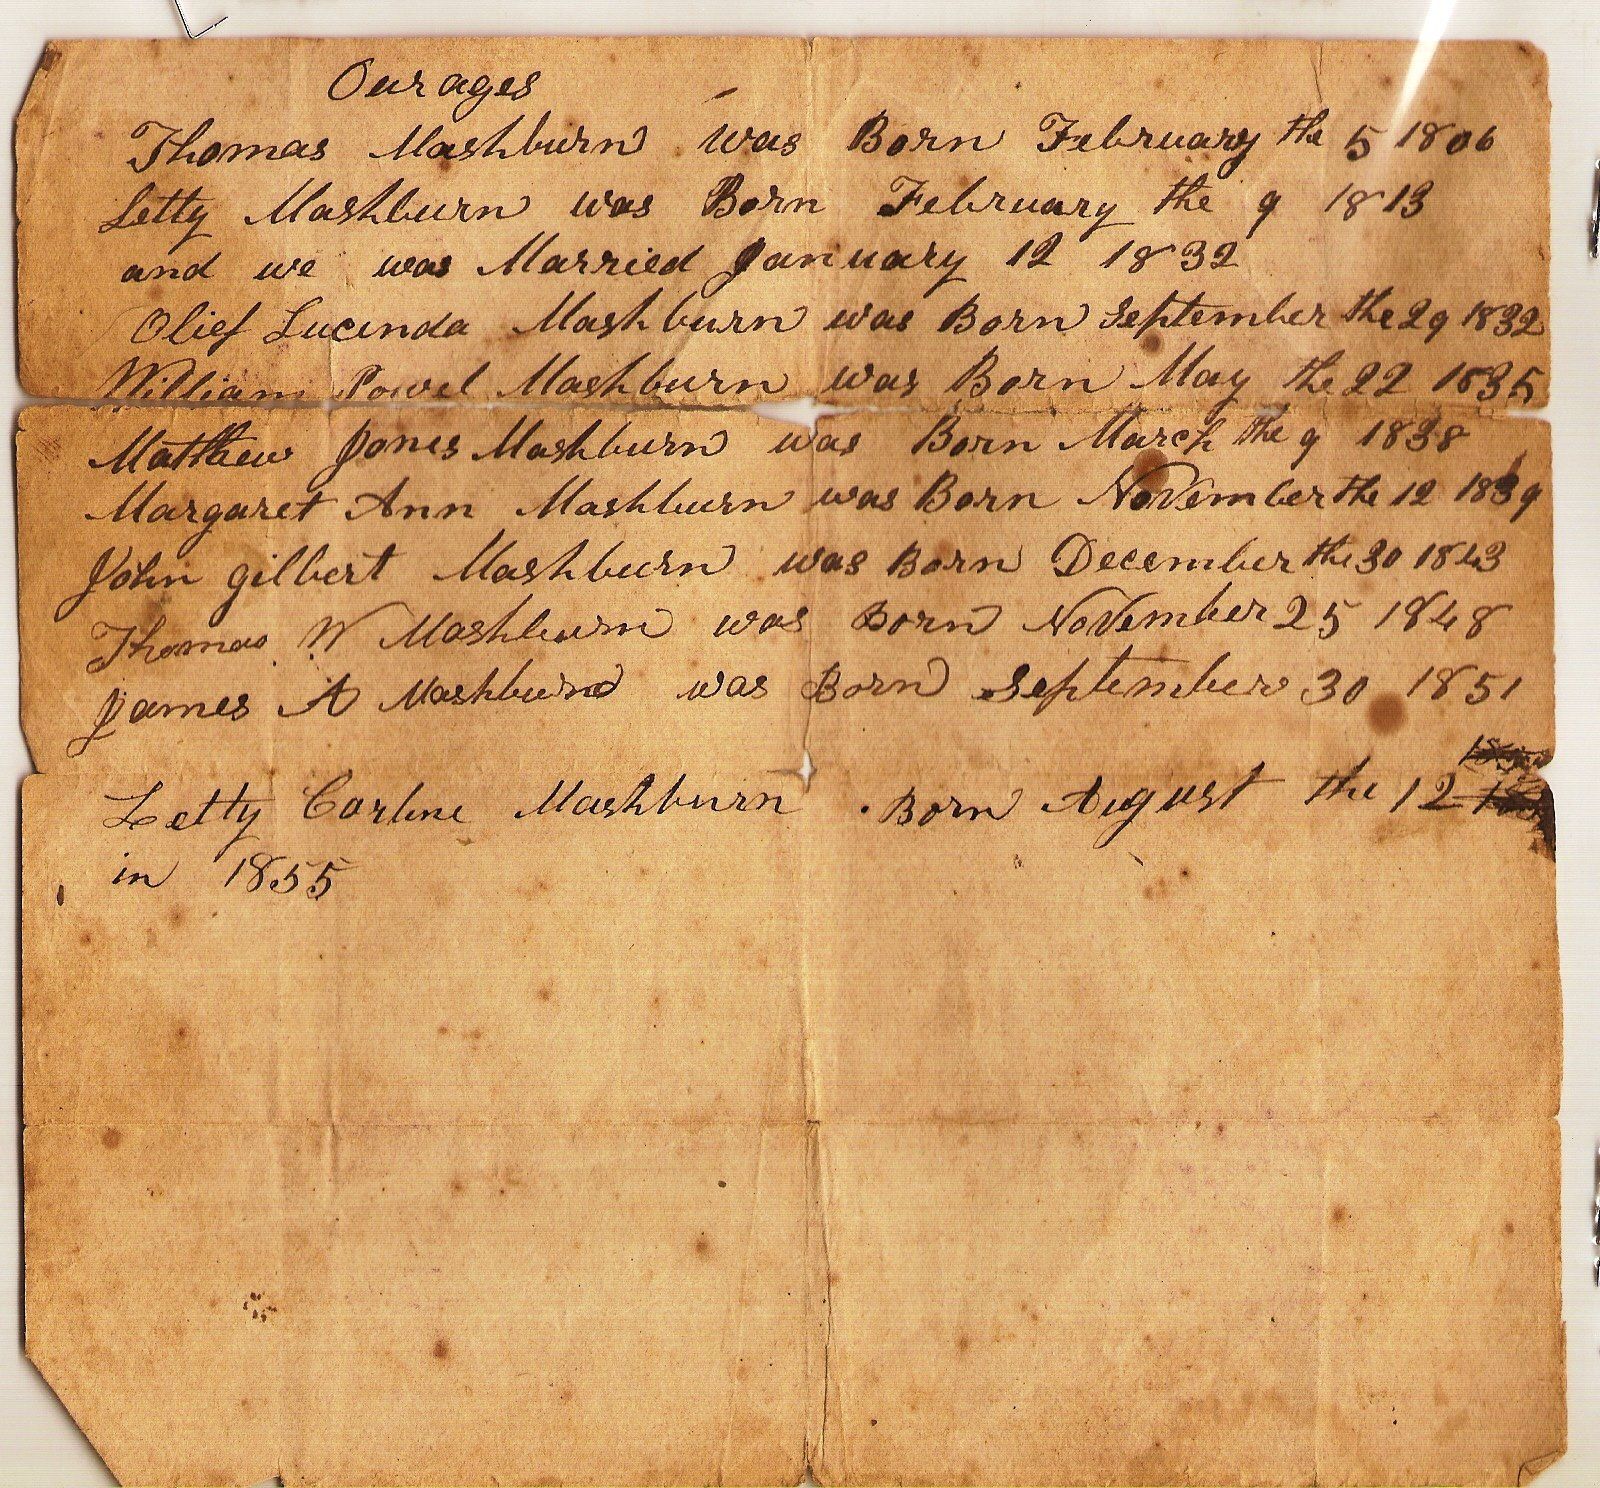 Our ages
Thomas Mashburn was Born February the 5 1806
Letty Mashburn was Born February the 9 1813
and we was Married January 12 1832
Olief Lucinda Mashburn was Born September the 29 1832
William Powel Mashburn was Born May the 22 1835
Matthew Jones Mashburn was Born March the 9 1838
Margaret Ann Mashburn was Born November the 12 1839
John gilbert Mashburn was Born December the 30 1843
Thomas W Mashburn was Born November 25 1848
James A Mashburn was Born September 30 1851
Letty Carline Mashburn . Born August the 12
in 1855